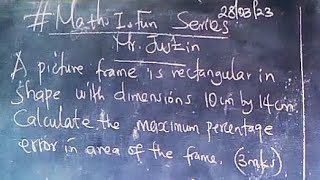 # Maths Is Fun Series 28/03/23
Mr. Justin
A picture frame is rectangular in
shape with dimensions 10cm by 14cm.
Calculate the maximum percentage
error in area of the frame. (3mks)